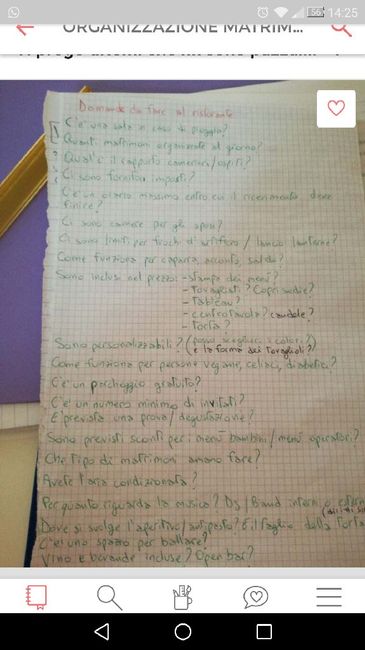 56 14:25
ORGANIZZAZIONE MATRIM...
Domande da fare al ristorante
C'è una sala in caso di pioggia?
Quanti matrimoni organizzate al giorno?
Qual è il rapporto camerieri/ospiti?
Ci sono fornitori imposti?
C'è un orario massimo entro cui il ricevimento deve
finire?
Ci sono camere per gli sposi?
Ci sono limiti per fuochi d'artificio / lancio lanterne?
Come funziona per caparra, acconto, saldo?
Sono inclusi nel prezzo: - stampa dei menù?
- Tovagliati? Coprisedie?
- Tableau?
- centrotavola? candele?
- Torta?
Sono personalizzabili? (posso scegliere i colori?)
e la forma dei Tovaglioli?
Come funziona per persone vegane, celiaci, diabetici?
C'è un parcheggio gratuito?
C'è un numero minimo di invitati?
È prevista una prova/degustazione?
Sono previsti sconti per i menù bambini/menù operatori?
Che tipo di matrimoni amano fare?
Avete l'aria condizionata?
Per quanto riguarda la musica? DJ/Band interni o esterni
Dove si svolge l'aperitivo/antipasto? E il taglio della Torta
C'è uno spazio per ballare?
Vino e bevande incluse? Open bar?